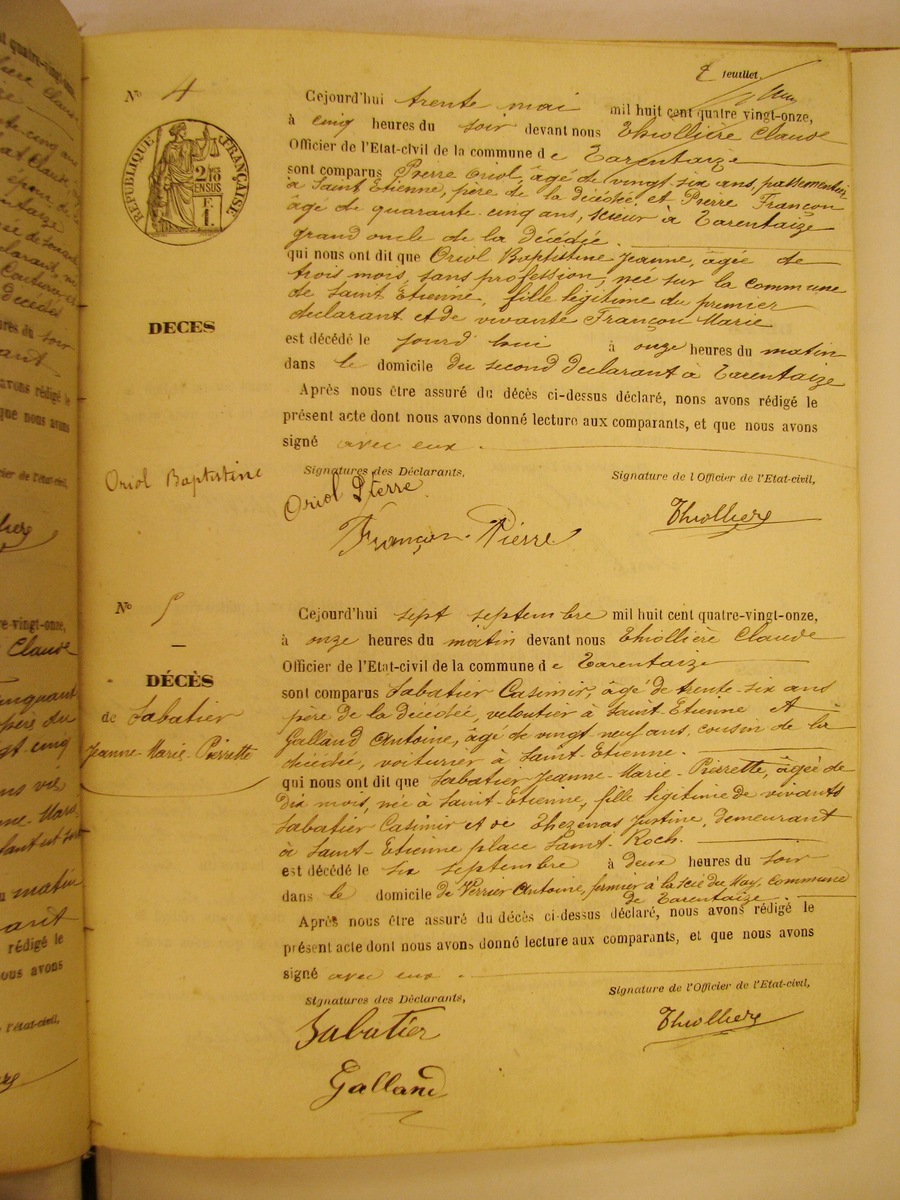 2 feuillet.
No 4
REPUBLIQUE FRANÇAISE
Cejourd'hui trente mai mil huit cent quatre vingt-onze,
à cinq heures du soir devant nous Thiollière Claude
Officier de l'Etat-civil de la commune de Tarentaize
sont comparus Pierre Oriol, âgé de vingt-six ans, passementier
à Saint Etienne, père de la décédée et Pierre Françon
âgé de quarante-cinq ans, scieur à Tarentaize
grand oncle de la décédée.
qui nous ont dit que Oriol Baptistine Jeanne, âgée de
trois mois, sans profession, née sur la commune
de Saint Etienne, fille légitime du premier
déclarant et de vivante Françon Marie
DECES
est décédé le jourd'hui à onze heures du matin
dans le domicile du second déclarant à Tarentaize
Après nous être assuré du décès ci-dessus déclaré, nons avons rédigé le
présent acte dont nous avons donné lecture aux comparants, et que nous avons
signé avec eux.
Oriol Baptistine
Signatures des Déclarants,
Signature de l Officier de l'Etat-civil,
Oriol Pierre
Thiolliere
Françon Pierre
No 5
Cejourd'hui sept septembre mil huit cent quatre-vingt-onze,
à onze heures du matin devant nous Thiollière Claude
Officier de l'Etat-civil de la commune de Tarentaize
DÉCÈS
de Sabatier
Jeanne-Marie-Pierrette
sont comparus Sabatier Casimir, âgé de trente-six ans
père de la décédée, veloutier à Saint-Etienne et
Galland Antoine, âgé de vingt neuf ans, cousin de la
décédée, voiturier à Saint-Etienne.
qui nous ont dit que Sabatier Jeanne-Marie-Pierrette, âgée de
dix mois, née à Saint-Etienne, fille légitime de vivants
Sabatier Casimir et de Thezenas Justine, demeurant
à Saint-Etienne place Saint-Roch.
est décédé le six septembre à deux heures du soir
dans le domicile de Verrier Antoine, fermier à la scie du May, commune
de Tarentaize
Après nous être assuré du décès ci-dessus déclaré, nous avons rédigé le
présent acte dont nous avons donné lecture aux comparants, et que nous avons
signé avec eux.
Signatures des Déclarants,
Signature de l'Officier de l'Etat-civil,
Sabatier
Thiolliere
Galland